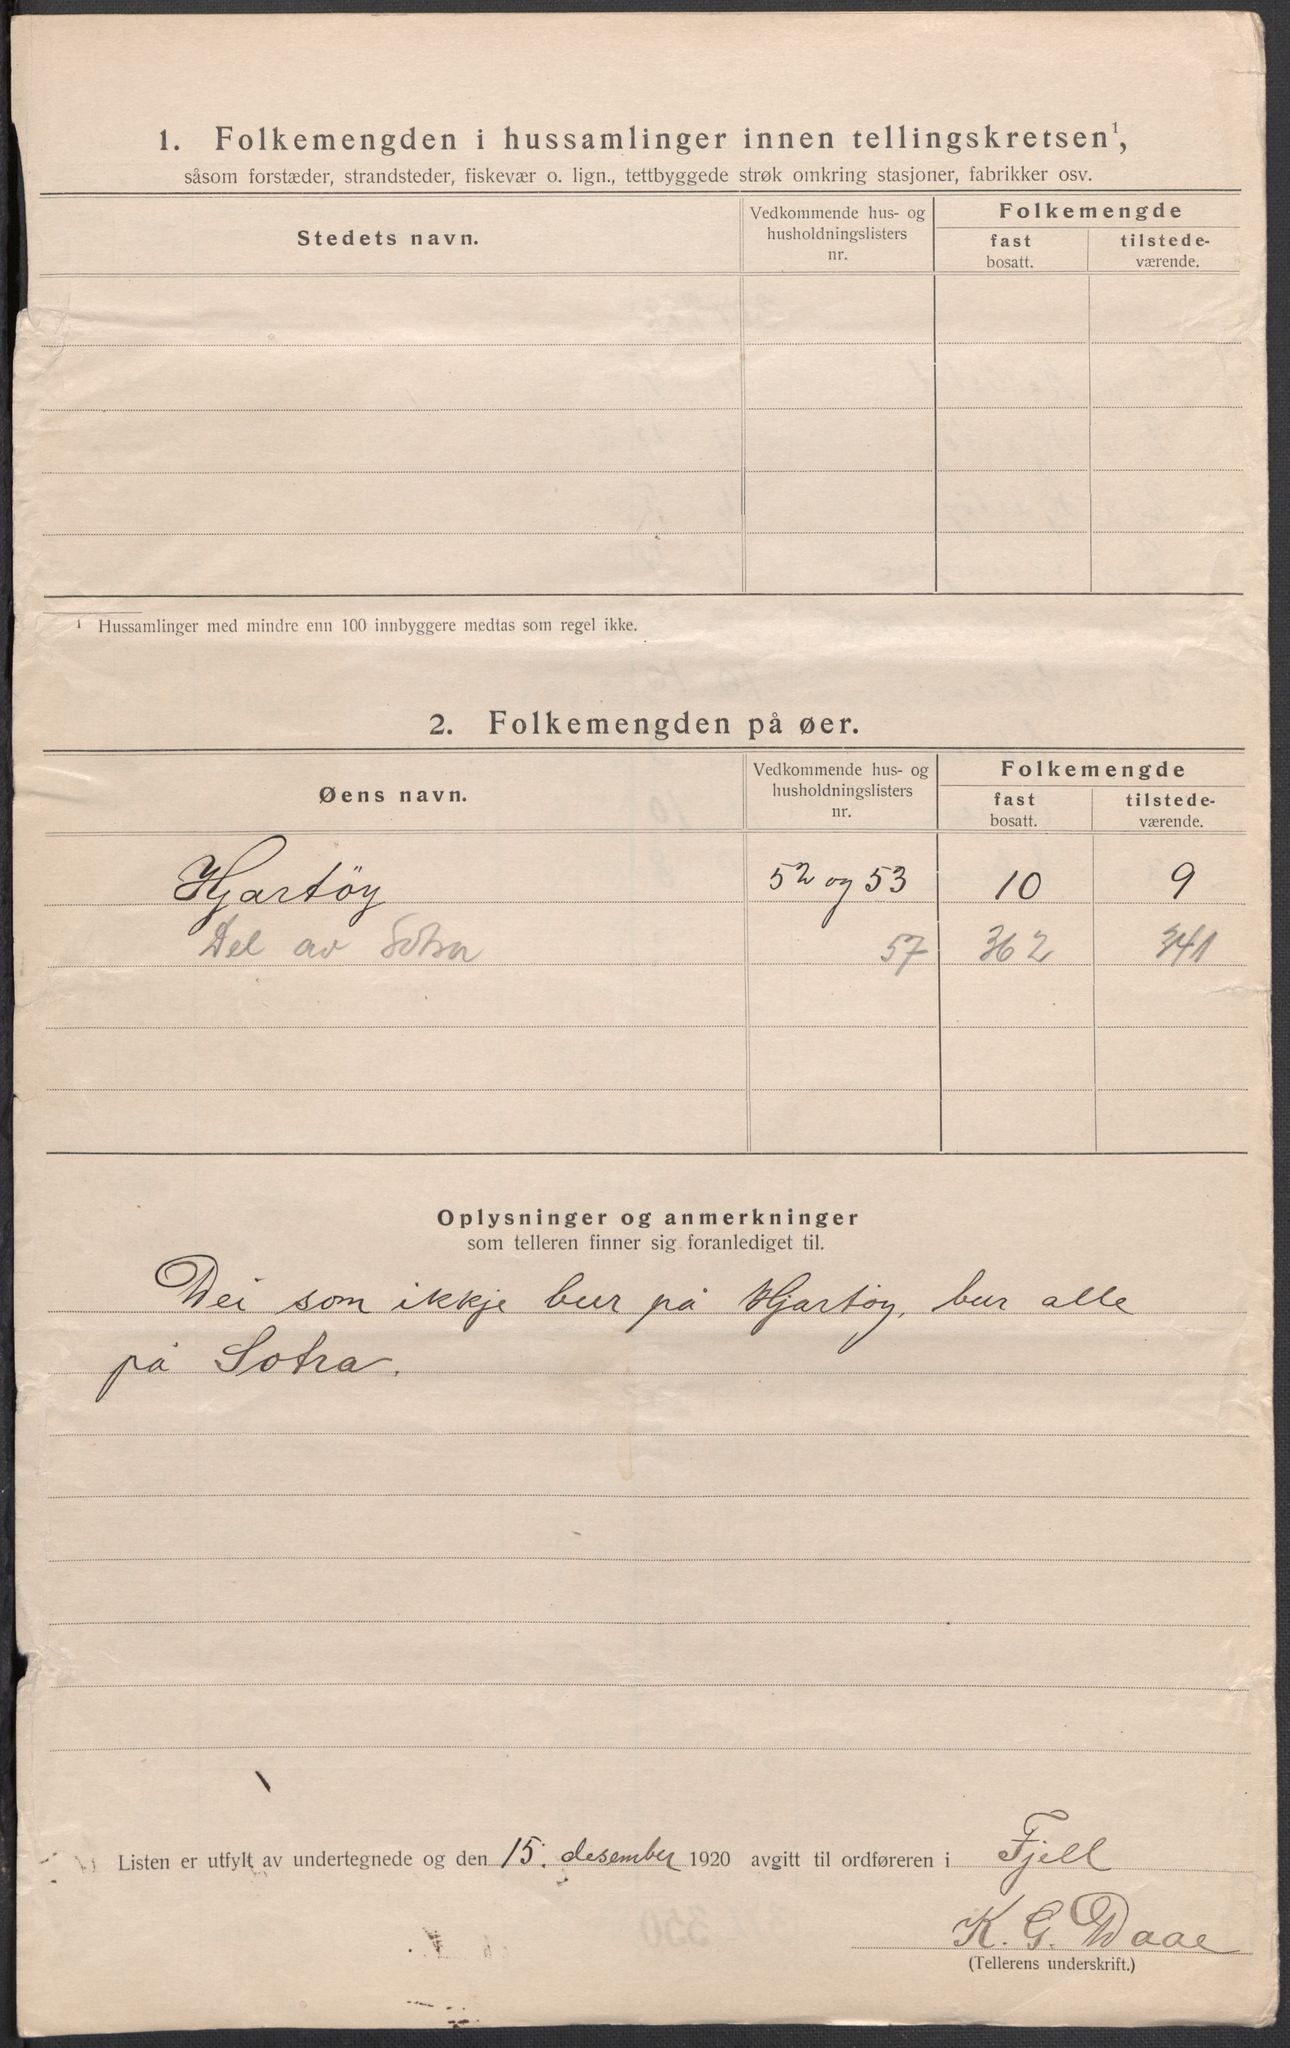 1. Folkemengden i hussamlinger innen tellingskretsen¹,
såsom forstæder, strandsteder, fiskevær o. lign., tettbyggede strøk omkring stasjoner, fabrikker osv.
Stedets navn.
Vedkommende hus- og
husholdningslisters
nr.
Folkemengde
fast
bosatt.
tilstede-
værende.
¹ Hussamlinger med mindre enn 100 innbyggere medtas som regel ikke.
2. Folkemengden på øer.
Øens navn.
Vedkommende hus- og
husholdningslisters
nr.
Folkemengde
fast
bosatt.
tilstede-
værende.
Hjartöy 52 og 53 10 9
Del av Sotra 57 362 341
Oplysninger og anmerkninger
som telleren finner sig foranlediget til.
Dei som ikkje bur på Hjartöy, bur alle
på Sotra.
Listen er utfylt av undertegnede og den 15. desember 1920 avgitt til ordføreren i Fjell
K. G. Daae
(Tellerens underskrift.)